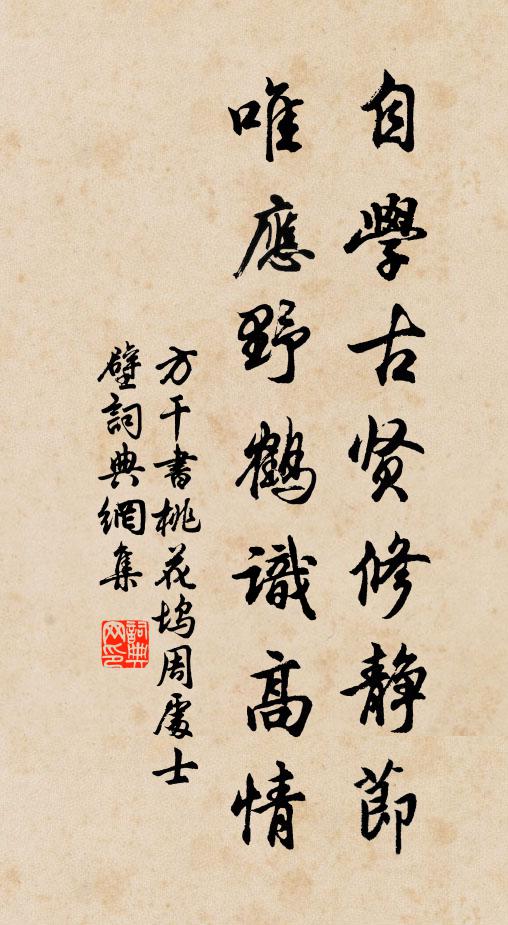 自學古贤修静節
唯應野鶴識高情
方干書桃花塢周處士
壁詞典網集
詞典
网印